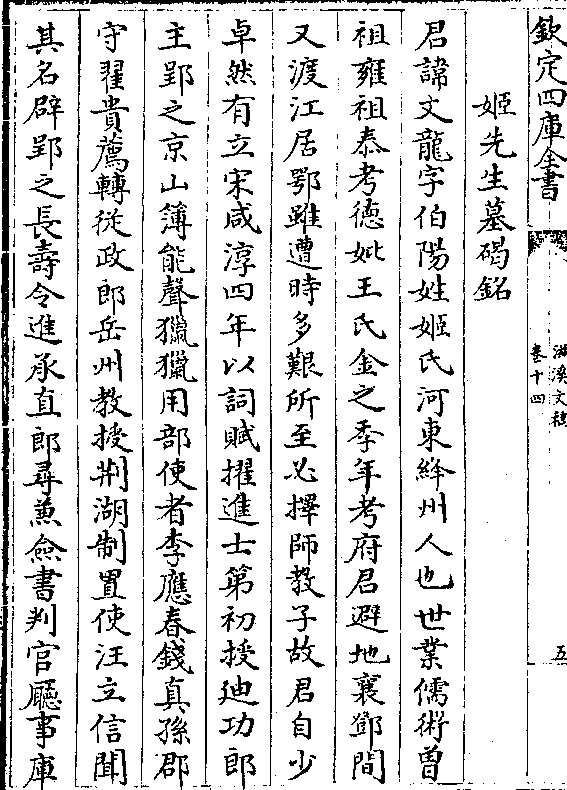 欽定四庫全書
滋溪文稿
卷十四
五
姬先生墓碣銘
君諱文龍字伯陽姓姬氏河東絳州人也世業儒術曾
祖雍祖泰考德妣王氏金之季年考府君避地襄鄧間
又渡江居鄂雖遭時多艱所至必擇師教子故君自少
卓然有立宋咸淳四年以詞賦擢進士第初授廸功郎
主郢之京山簿能聲獵獵用部使者李應春錢真孫郡
守翟貴薦轉從政郎岳州教授荆湖制置使汪立信聞
其名辟郢之長壽令進承直郎尋兼僉書判官廳事庫